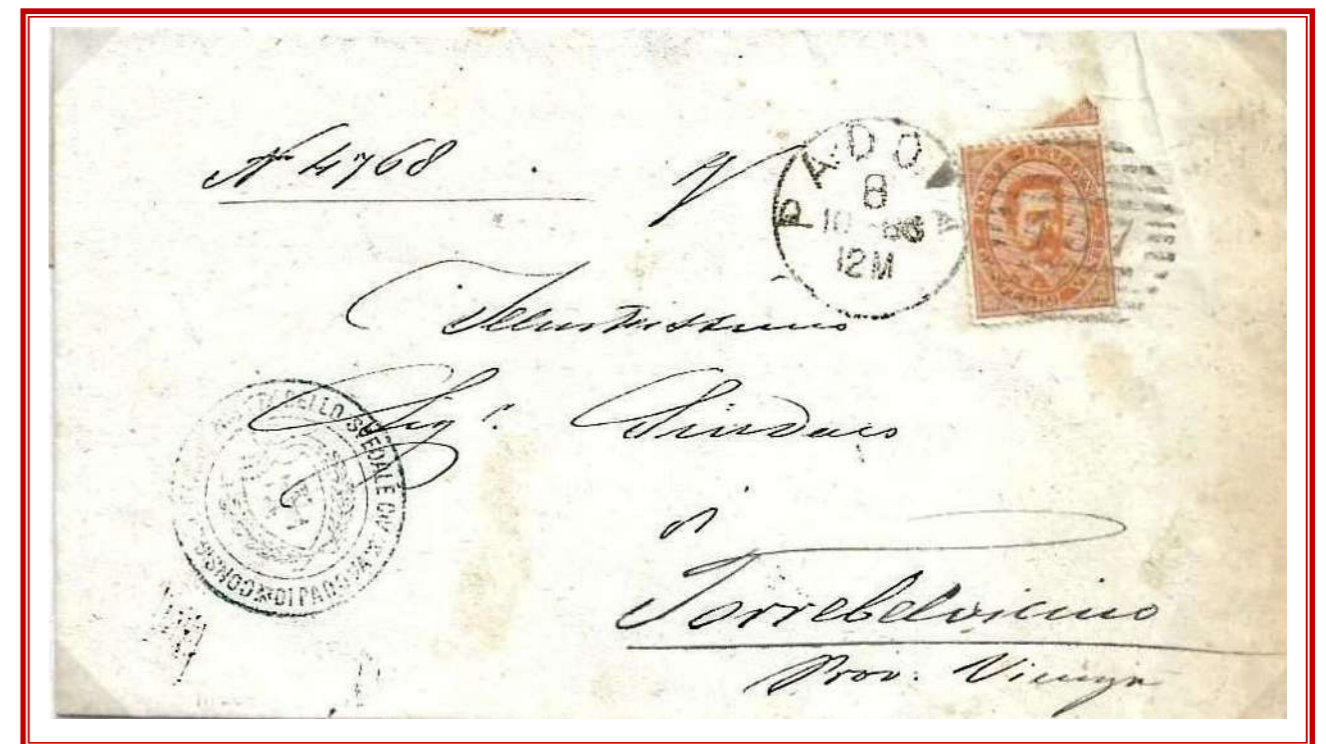 N 4768
PADOVA
8
10 - 86
12M
Illustrissimo
Sigr. Sindaco
di
Torrebelvicino
Prov. Vicenza
DELLO SPEDALE CIV
DI PADOVA
CONS